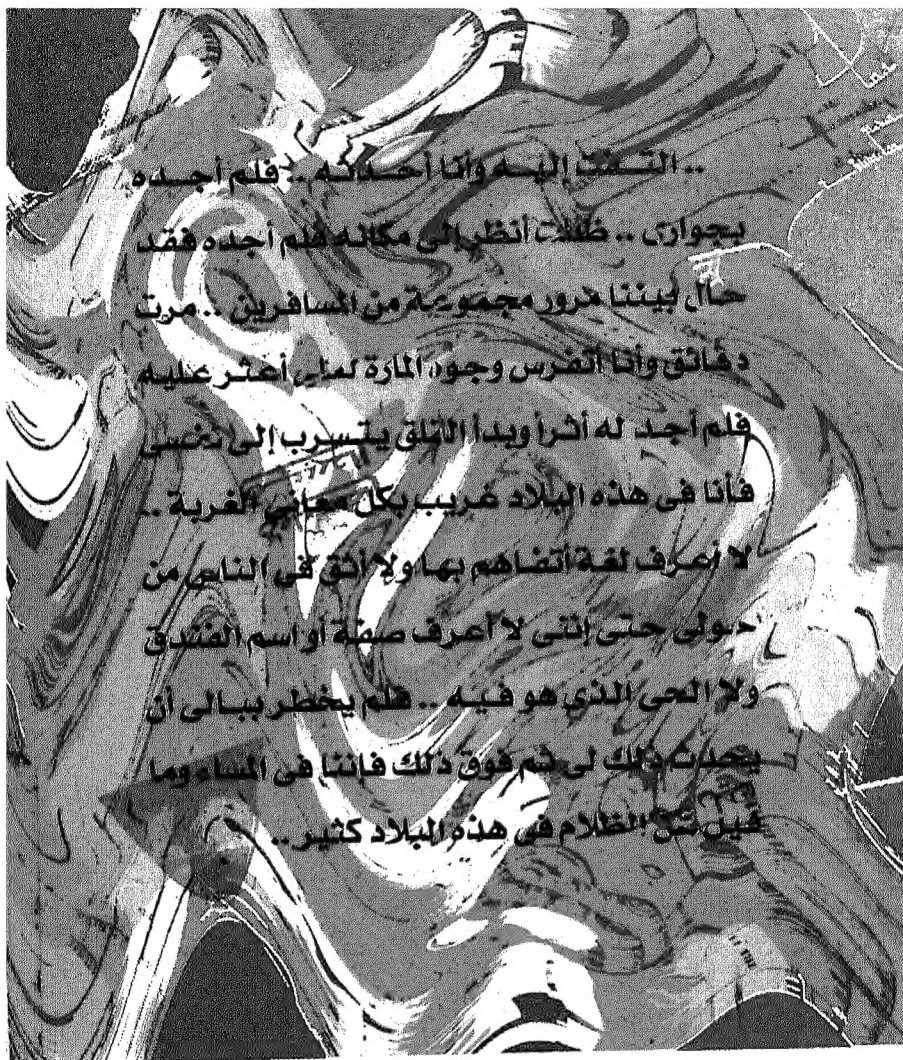 .. التفت إليه وأنا أحدثه .. فلم أجده
بجوارى .. ظللت أنظر إلى مكانه فلم أجده فقد
حال بيننا مرور مجموعة من المسافرين .. مرت
دقائق وأنا أتفرس وجوه المارة لعلى أعثر عليه
فلم أجد له أثراً وبدأ القلق يتسرب إلى نفسى
فأنا فى هذه البلاد غريب بكل معانى الغربة ..
لا أعرف لغة أتفاهم بها ولا أثق فى الناس من
حولى حتى إننى لا أعرف صفة أو اسم الفندق
ولا الحى الذي هو فيه .. فلم يخطر ببالى أن
يحدث ذلك لى ثم فوق ذلك فإننا فى المساء وما
قيل عن الظلام فى هذه البلاد كثير ..